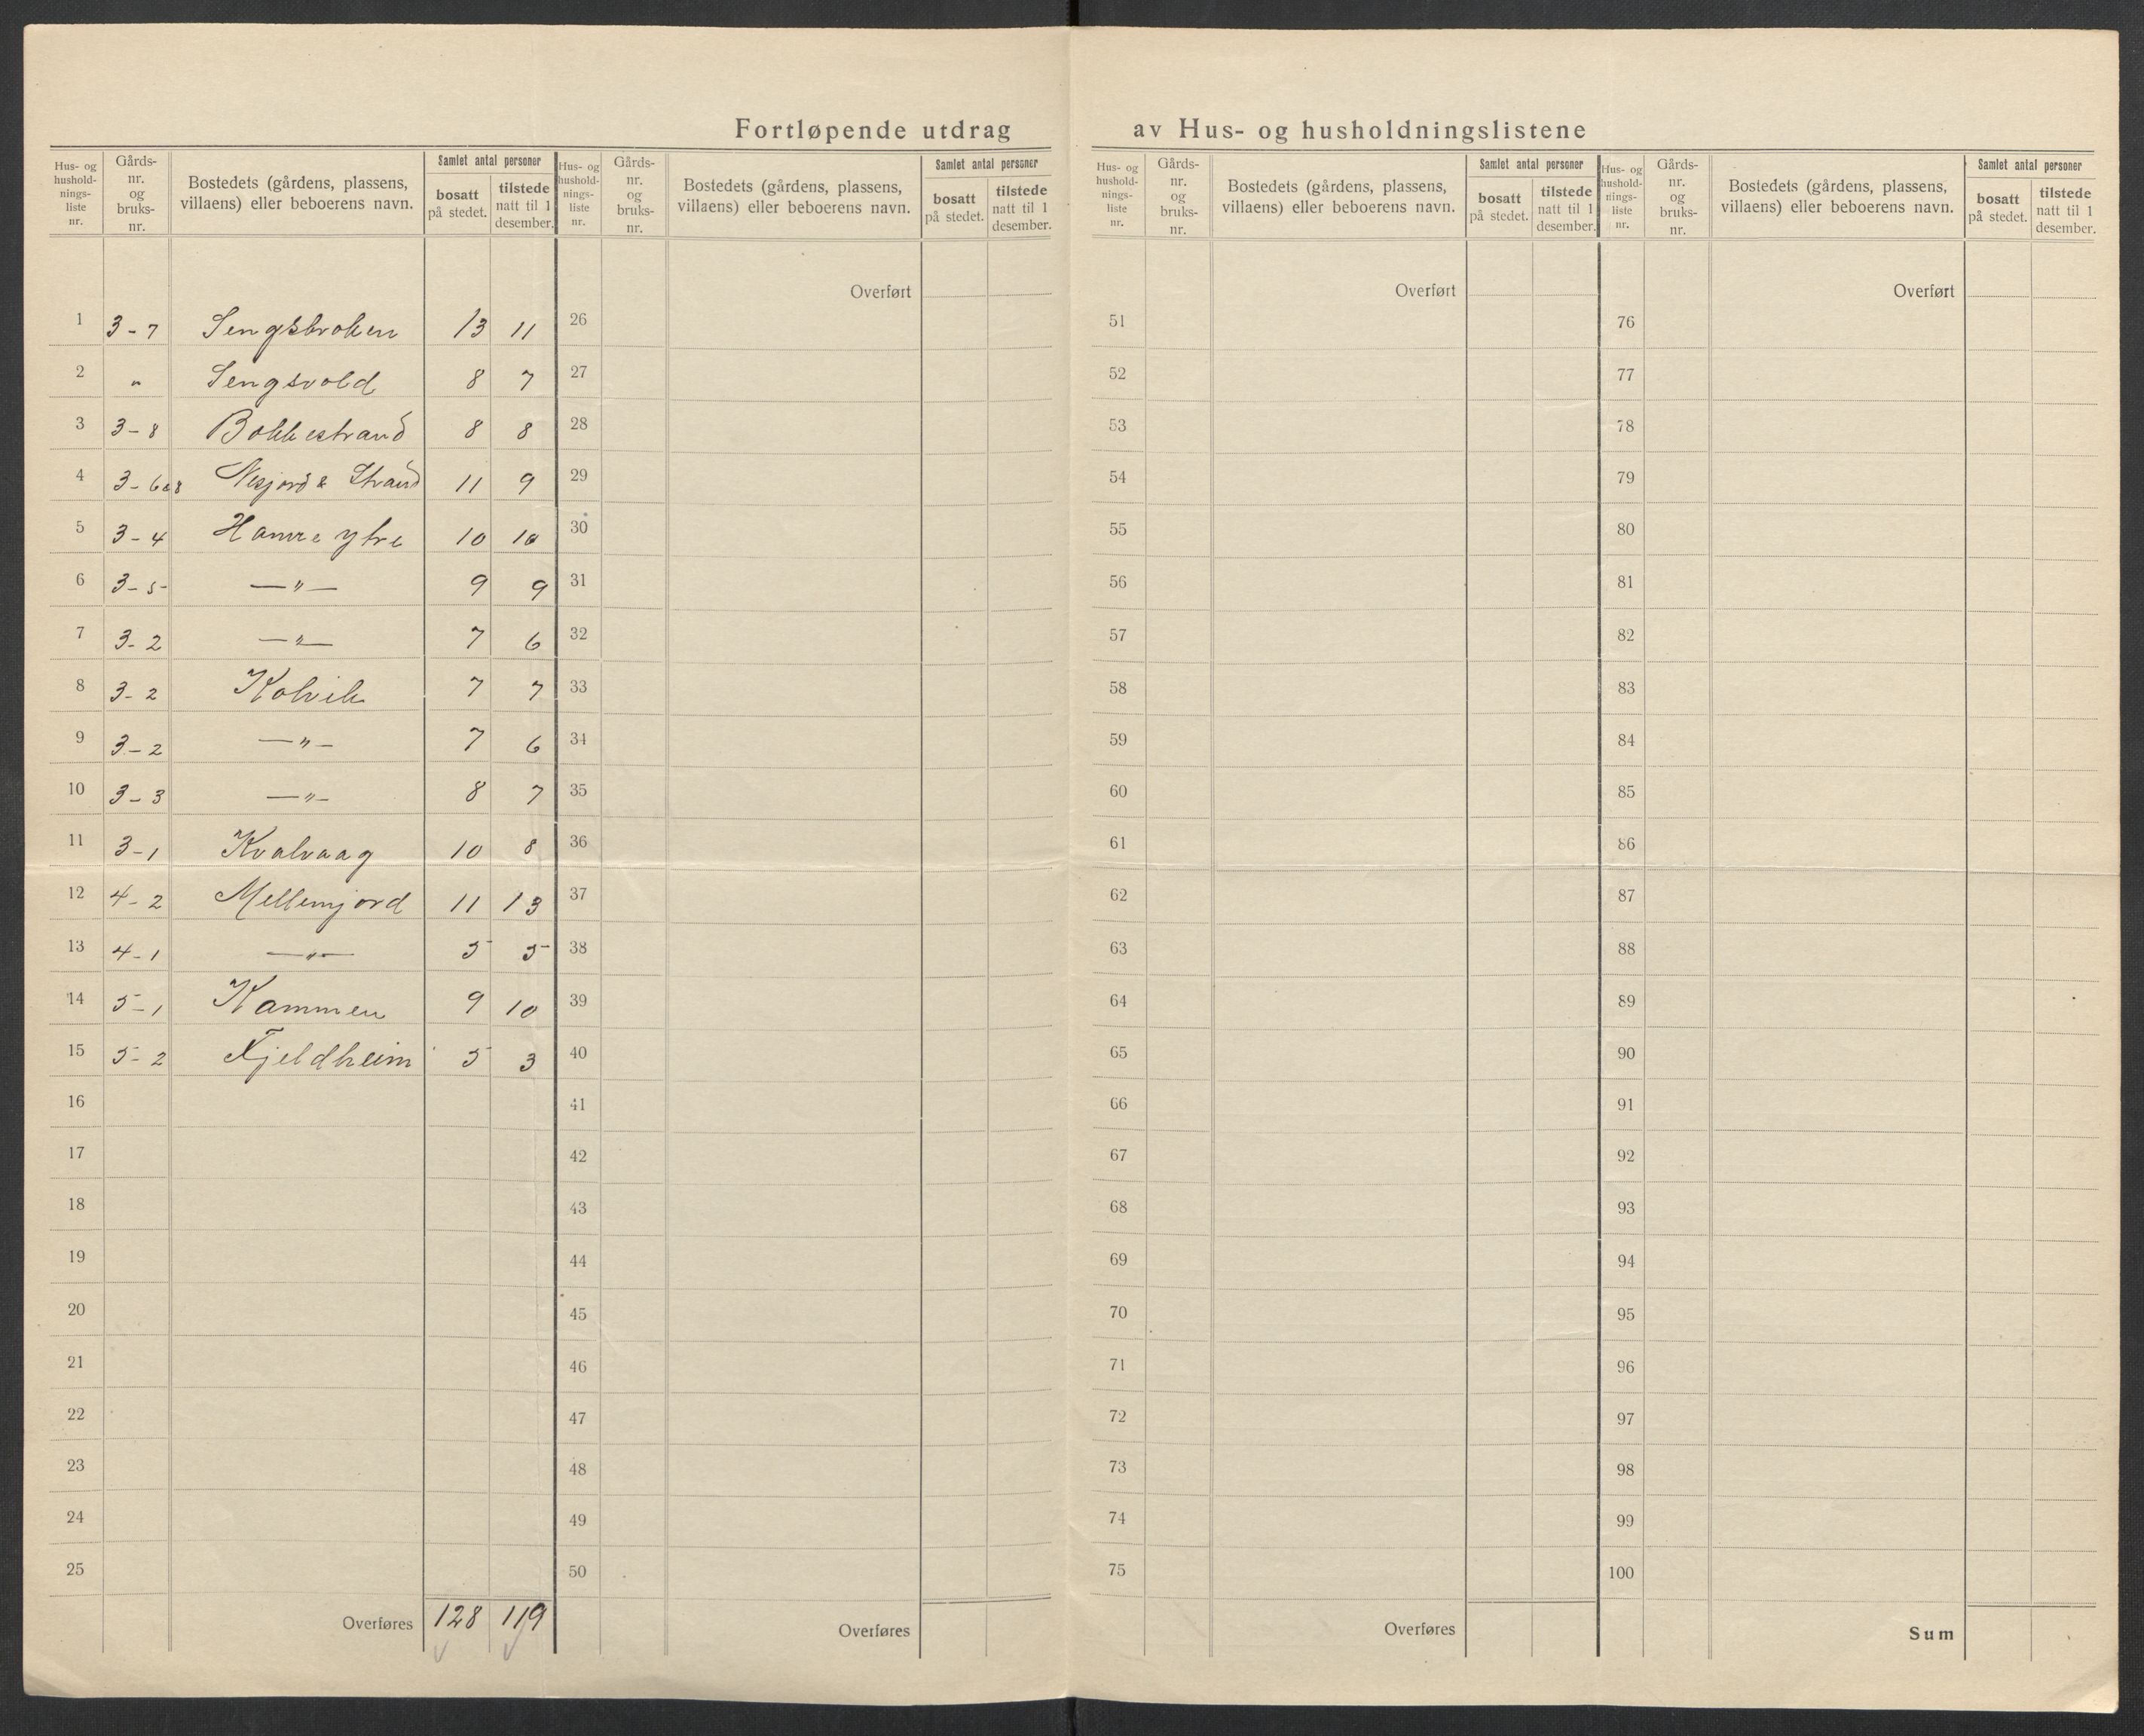 Fortløpende utdrag av Hus- og husholdningslistene
Hus- og hushold-nings-liste nr. Gårds-nr. og bruks-nr. Bostedets (gårdens, plassens, villaens) eller beboerens navn. Samlet antal personer bosatt på stedet. tilstede natt til 1 desember.
Hus- og hushold-nings-liste nr. Gårds-nr. og bruks-nr. Bostedets (gårdens, plassens, villaens) eller beboerens navn. Samlet antal personer bosatt på stedet. tilstede natt til 1 desember.
Hus- og hushold-nings-liste nr. Gårds-nr. og bruks-nr. Bostedets (gårdens, plassens, villaens) eller beboerens navn. Samlet antal personer bosatt på stedet. tilstede natt til 1 desember.
Hus- og hushold-nings-liste nr. Gårds-nr. og bruks-nr. Bostedets (gårdens, plassens, villaens) eller beboerens navn. Samlet antal personer bosatt på stedet. tilstede natt til 1 desember.
1 3-7 Sengsbroken 13 11
2 " Sengsvold 8 7
3 3-8 Bokkestrand 8 8
4 3-6&8 Nesjord & Strand 11 9
5 3-4 Hamre ytre 10 10
6 3-5 —"— 9 9
7 3-2 —"— 7 6
8 3-2 Kolvik 7 7
9 3-2 —"— 7 6
10 3-3 —"— 8 7
11 3-1 Kvalvaag 10 8
12 4-2 Mellemjord 11 13
13 4-1 —"— 5 5
14 5-1 Kammen 9 10
15 5-2 Fjeldheim 5 3
16
17
18
19
20
21
22
23
24
25
Overføres 128 119
Overført
26
27
28
29
30
31
32
33
34
35
36
37
38
39
40
41
42
43
44
45
46
47
48
49
50
Overføres
Overført
51
52
53
54
55
56
57
58
59
60
61
62
63
64
65
66
67
68
69
70
71
72
73
74
75
Overføres
Overført
76
77
78
79
80
81
82
83
84
85
86
87
88
89
90
91
92
93
94
95
96
97
98
99
100
Sum